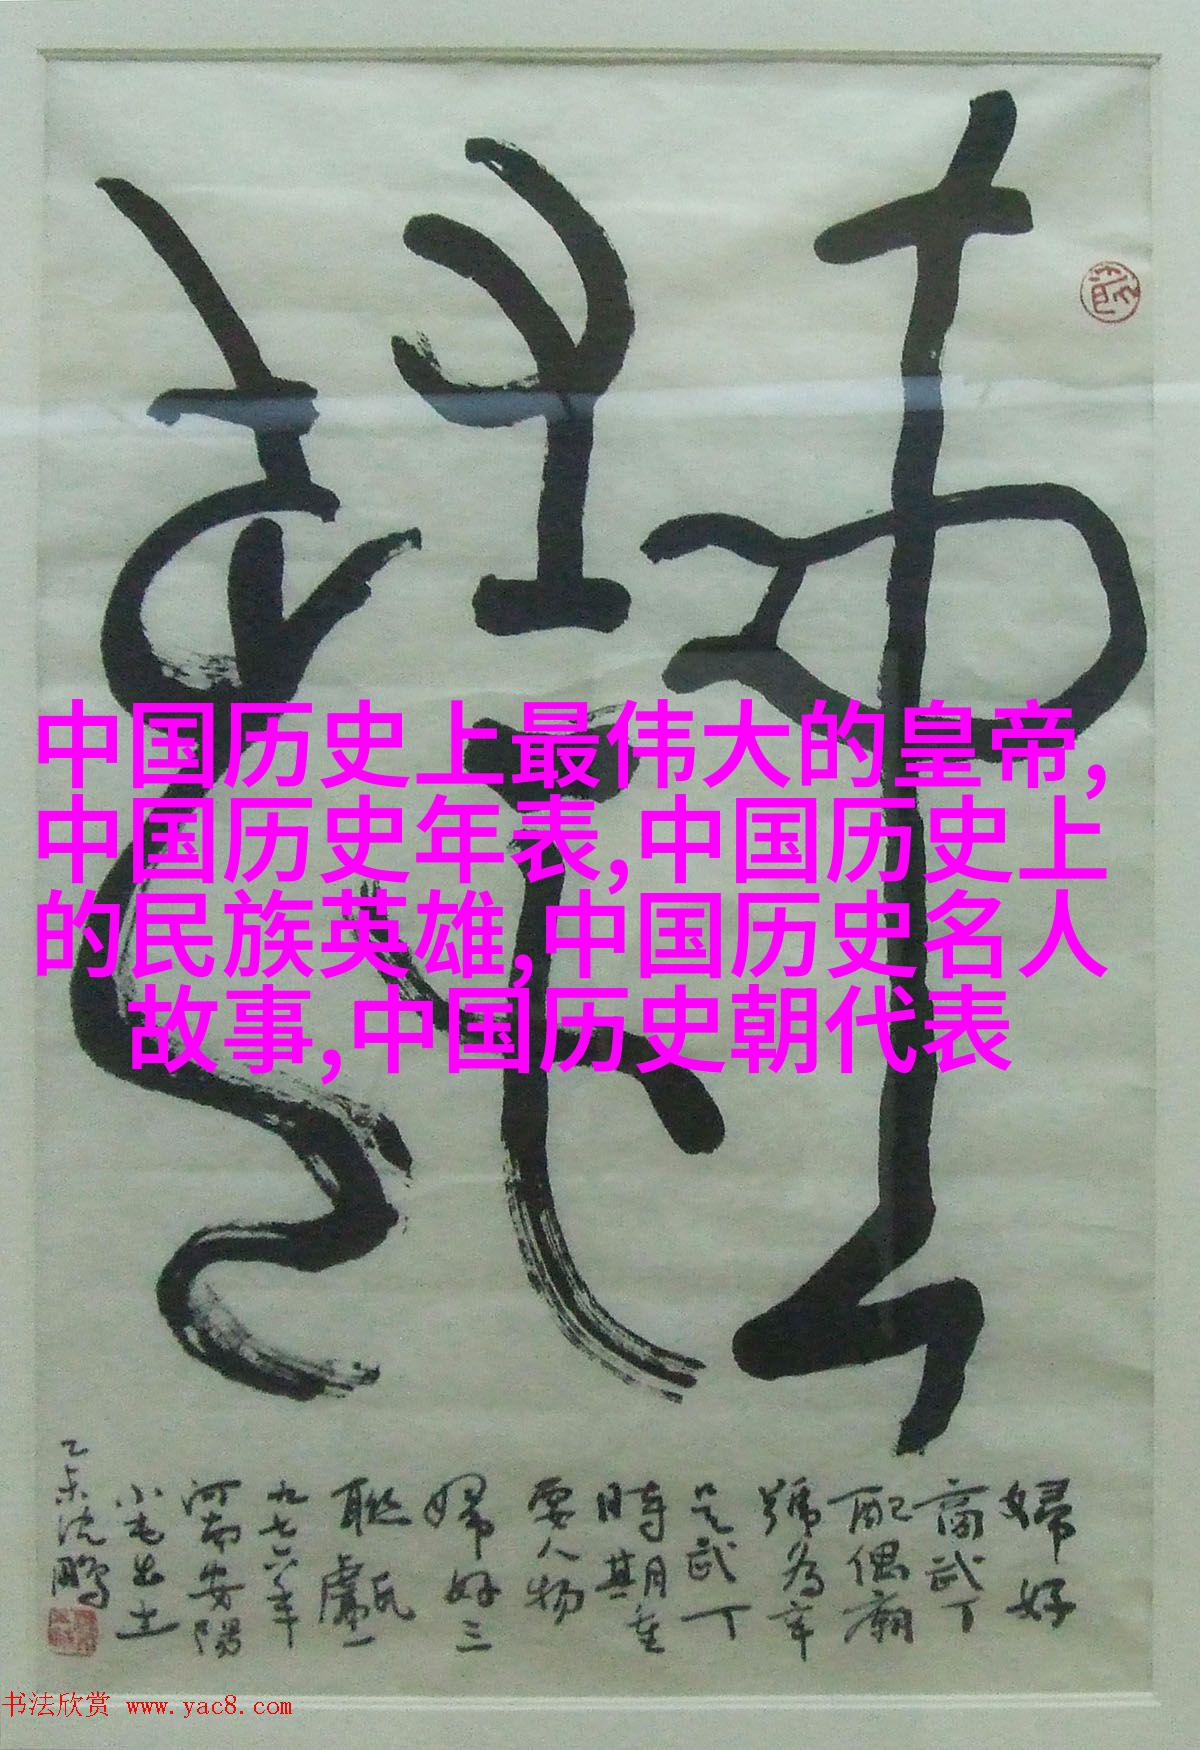 中国历史上最伟大的皇帝,
中国历史年表,中国历史上
的民族英雄,中国历史名人
故事,中国历史朝代表
婦好
商武丁
配偶廟
號為辛
是武丁
時期重
要人物
婦好三
聯甗
九七六年
河南安陽
小屯出土
乙未沈鵬
书法欣赏 www.yac8.com